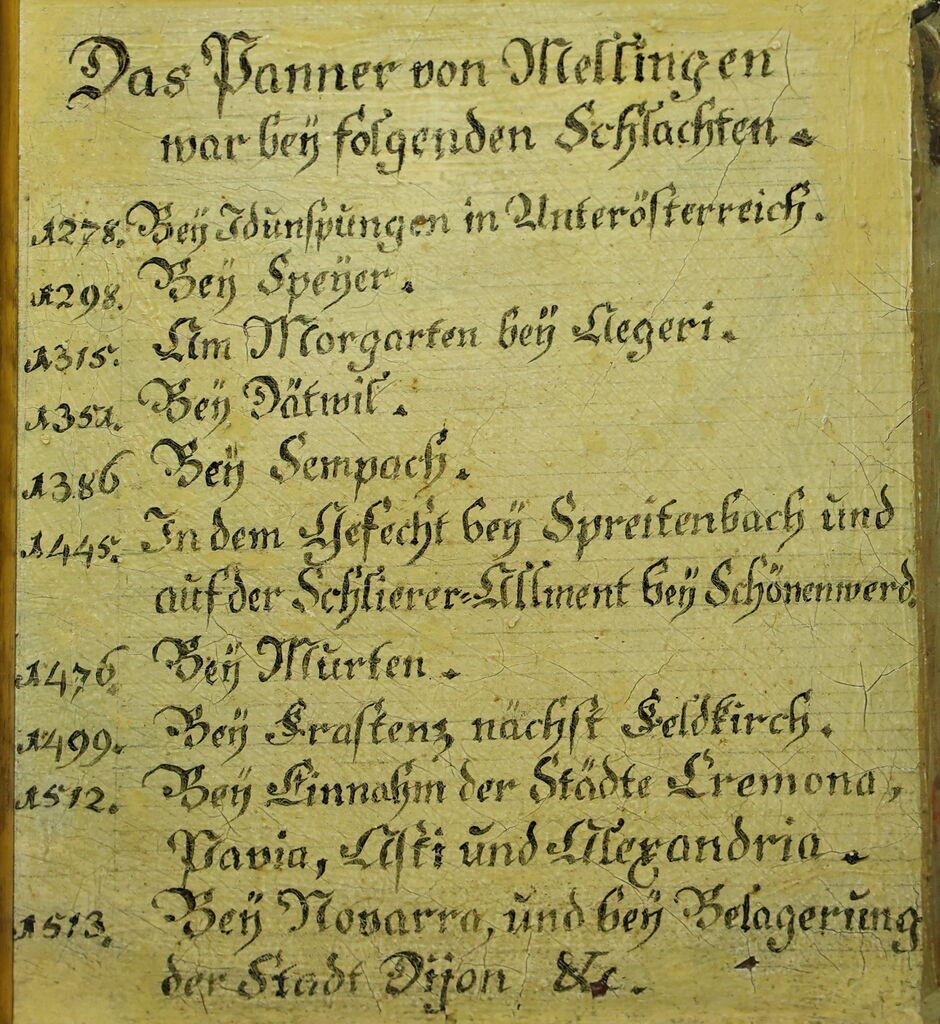 Das Panner von Mellingen
war bey folgenden Schlachten.
1278. Bey Idunspungen in Unterösterreich.
1298. Bey Speyer.
1315. Am Morgarten bey Aegeri.
1351. Bey Dätwil.
1386 Bey Sempach.
1445. In dem Gefecht bey Spreitenbach und
auf der Schlierer-Allment bey Schönenwerd.
1476. Bey Murten.
1499. Bey Frastenz nächst Feldkirch.
1512. Bey Einnahm der Städte Cremona,
Pavia, Asti und Alexandria.
1513. Bey Novarra, und bey Belagerung
der Stadt Dijon &c.